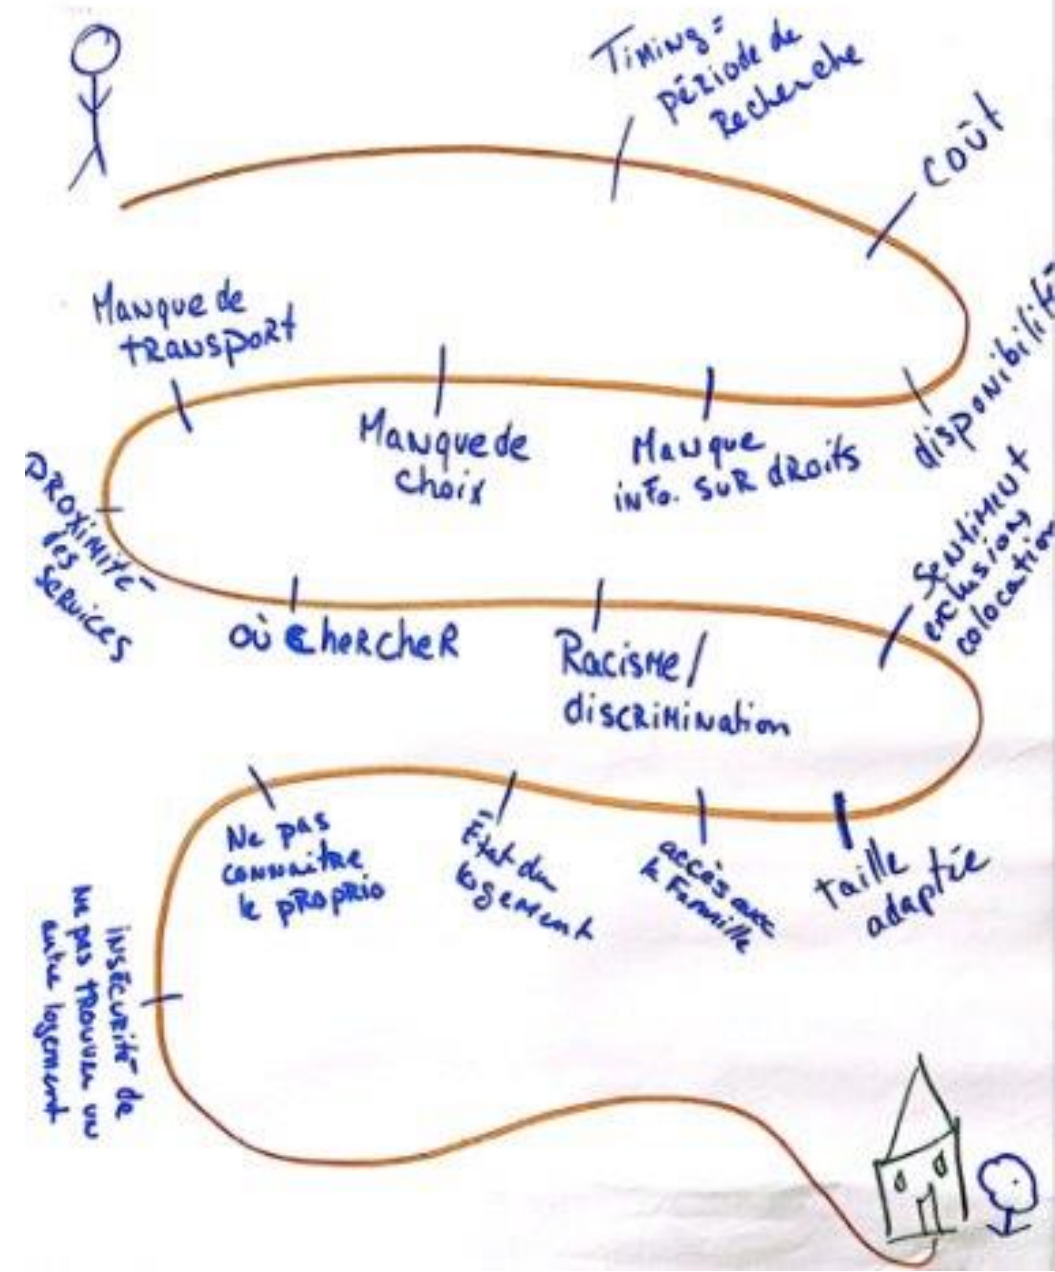 Timing =
période de
Recherche
Coût
disponibilité
Manque
info. sur droits
Manque de
choix
Manque de
transport
Proximité
des
services
où chercher
Racisme/
discrimination
Sentiment
exclusion
colocation
taille
adaptée
accès avec
la Famille
État du
logement
Ne pas
connaitre
le proprio
insécurité de
ne pas trouver un
autre logement